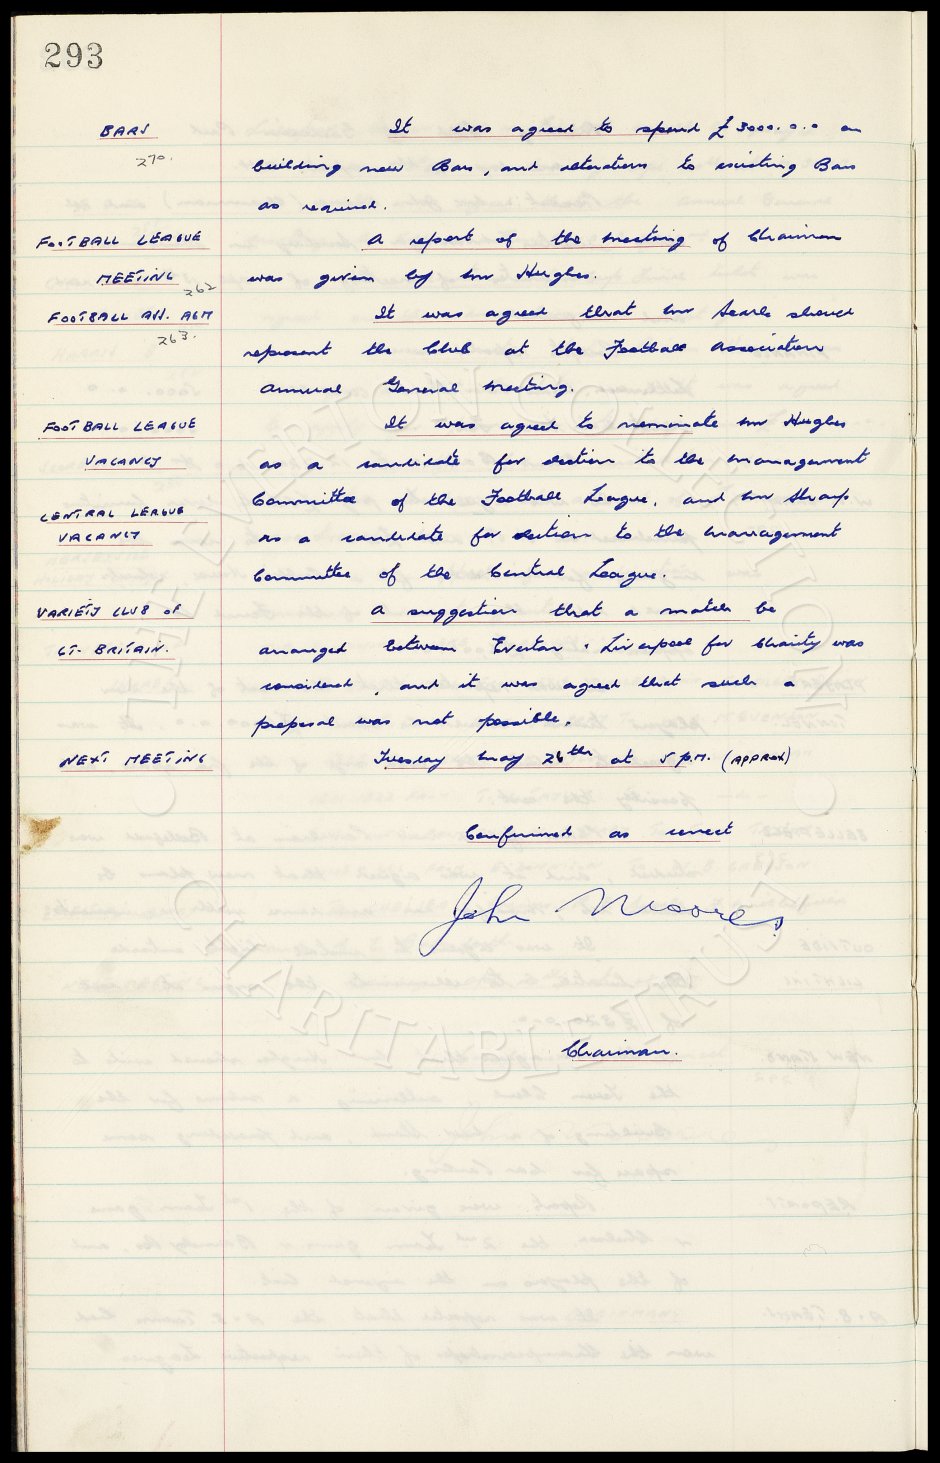 293
BARS It was agreed to spend £3000.0.0 on
270. building new Bars, and alterations to existing Bars
as required.
FOOTBALL LEAGUE A report of the meeting of Chairmen
MEETING 262 was given by Mr Hughes.
FOOTBALL ASS. AGM It was agreed that Mr Searle should
263. represent the Club at the Football Association
Annual General Meeting.
FOOTBALL LEAGUE It was agreed to nominate Mr Hughes
VACANCY as a candidate for election to the management
Committee of the Football League, and Mr Sharp
CENTRAL LEAGUE
VACANCY as a candidate for election to the management
Committee of the Central League.
VARIETY CLUB OF A suggestion that a match be
GT. BRITAIN. arranged between Everton & Liverpool for Charity was
considered, and it was agreed that such a
proposal was not possible.
NEXT MEETING Tuesday May 26th at 5 P.M. (APPROX)
Confirmed as correct
John Moores
Chairman.
THE EVERTON COLLECTION
CHARITABLE TRUST